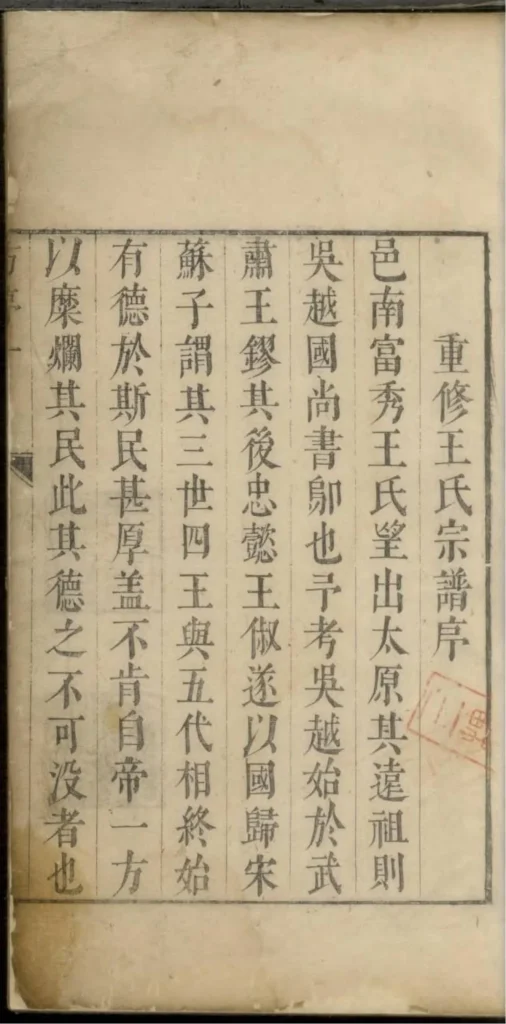 重修王氏宗譜序
邑南富秀王氏望出太原其遠祖則
吳越國尚書鄖也予考吳越始於武
肅王鏐其後忠懿王俶遂以國歸宋
蘇子謂其三世四王與五代相終始
有德於斯民甚厚盖不肯自帝一方
以糜爛其民此其德之不可没者也